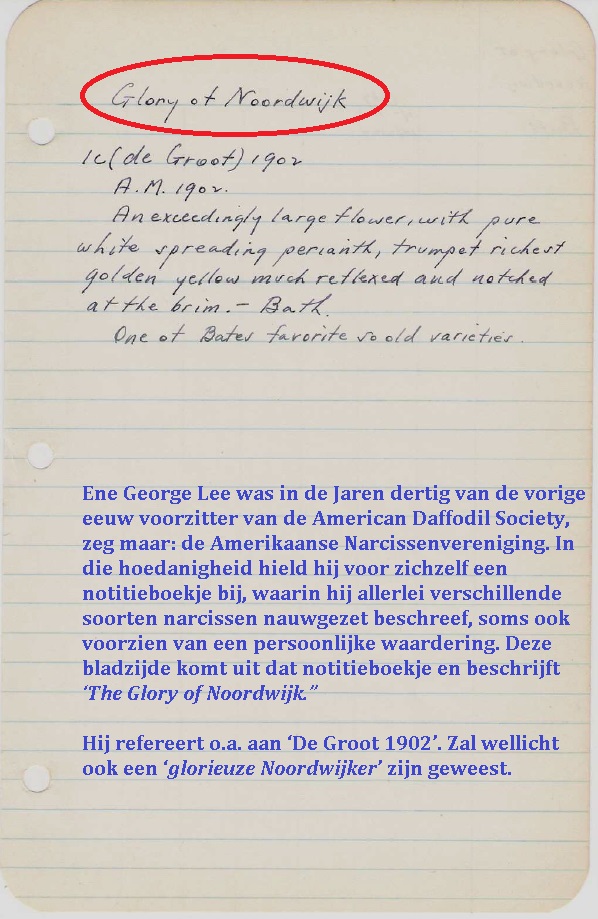 Glory of Noordwijk
1c (de Groot) 1902
A.M. 1902.
An exceedingly large flower, with pure
white spreading perianth, trumpet richest
golden yellow much reflexed and notched
at the brim. – Bath.
One of Bates favorite 50 old varieties.
Ene George Lee was in de Jaren dertig van de vorige
eeuw voorzitter van de American Daffodil Society,
zeg maar: de Amerikaanse Narcissenvereniging. In
die hoedanigheid hield hij voor zichzelf een
notitieboekje bij, waarin hij allerlei verschillende
soorten narcissen nauwgezet beschreef, soms ook
voorzien van een persoonlijke waardering. Deze
bladzijde komt uit dat notitieboekje en beschrijft
‘The Glory of Noordwijk.”
Hij refereert o.a. aan ‘De Groot 1902’. Zal wellicht
ook een ‘glorieuze Noordwijker’ zijn geweest.